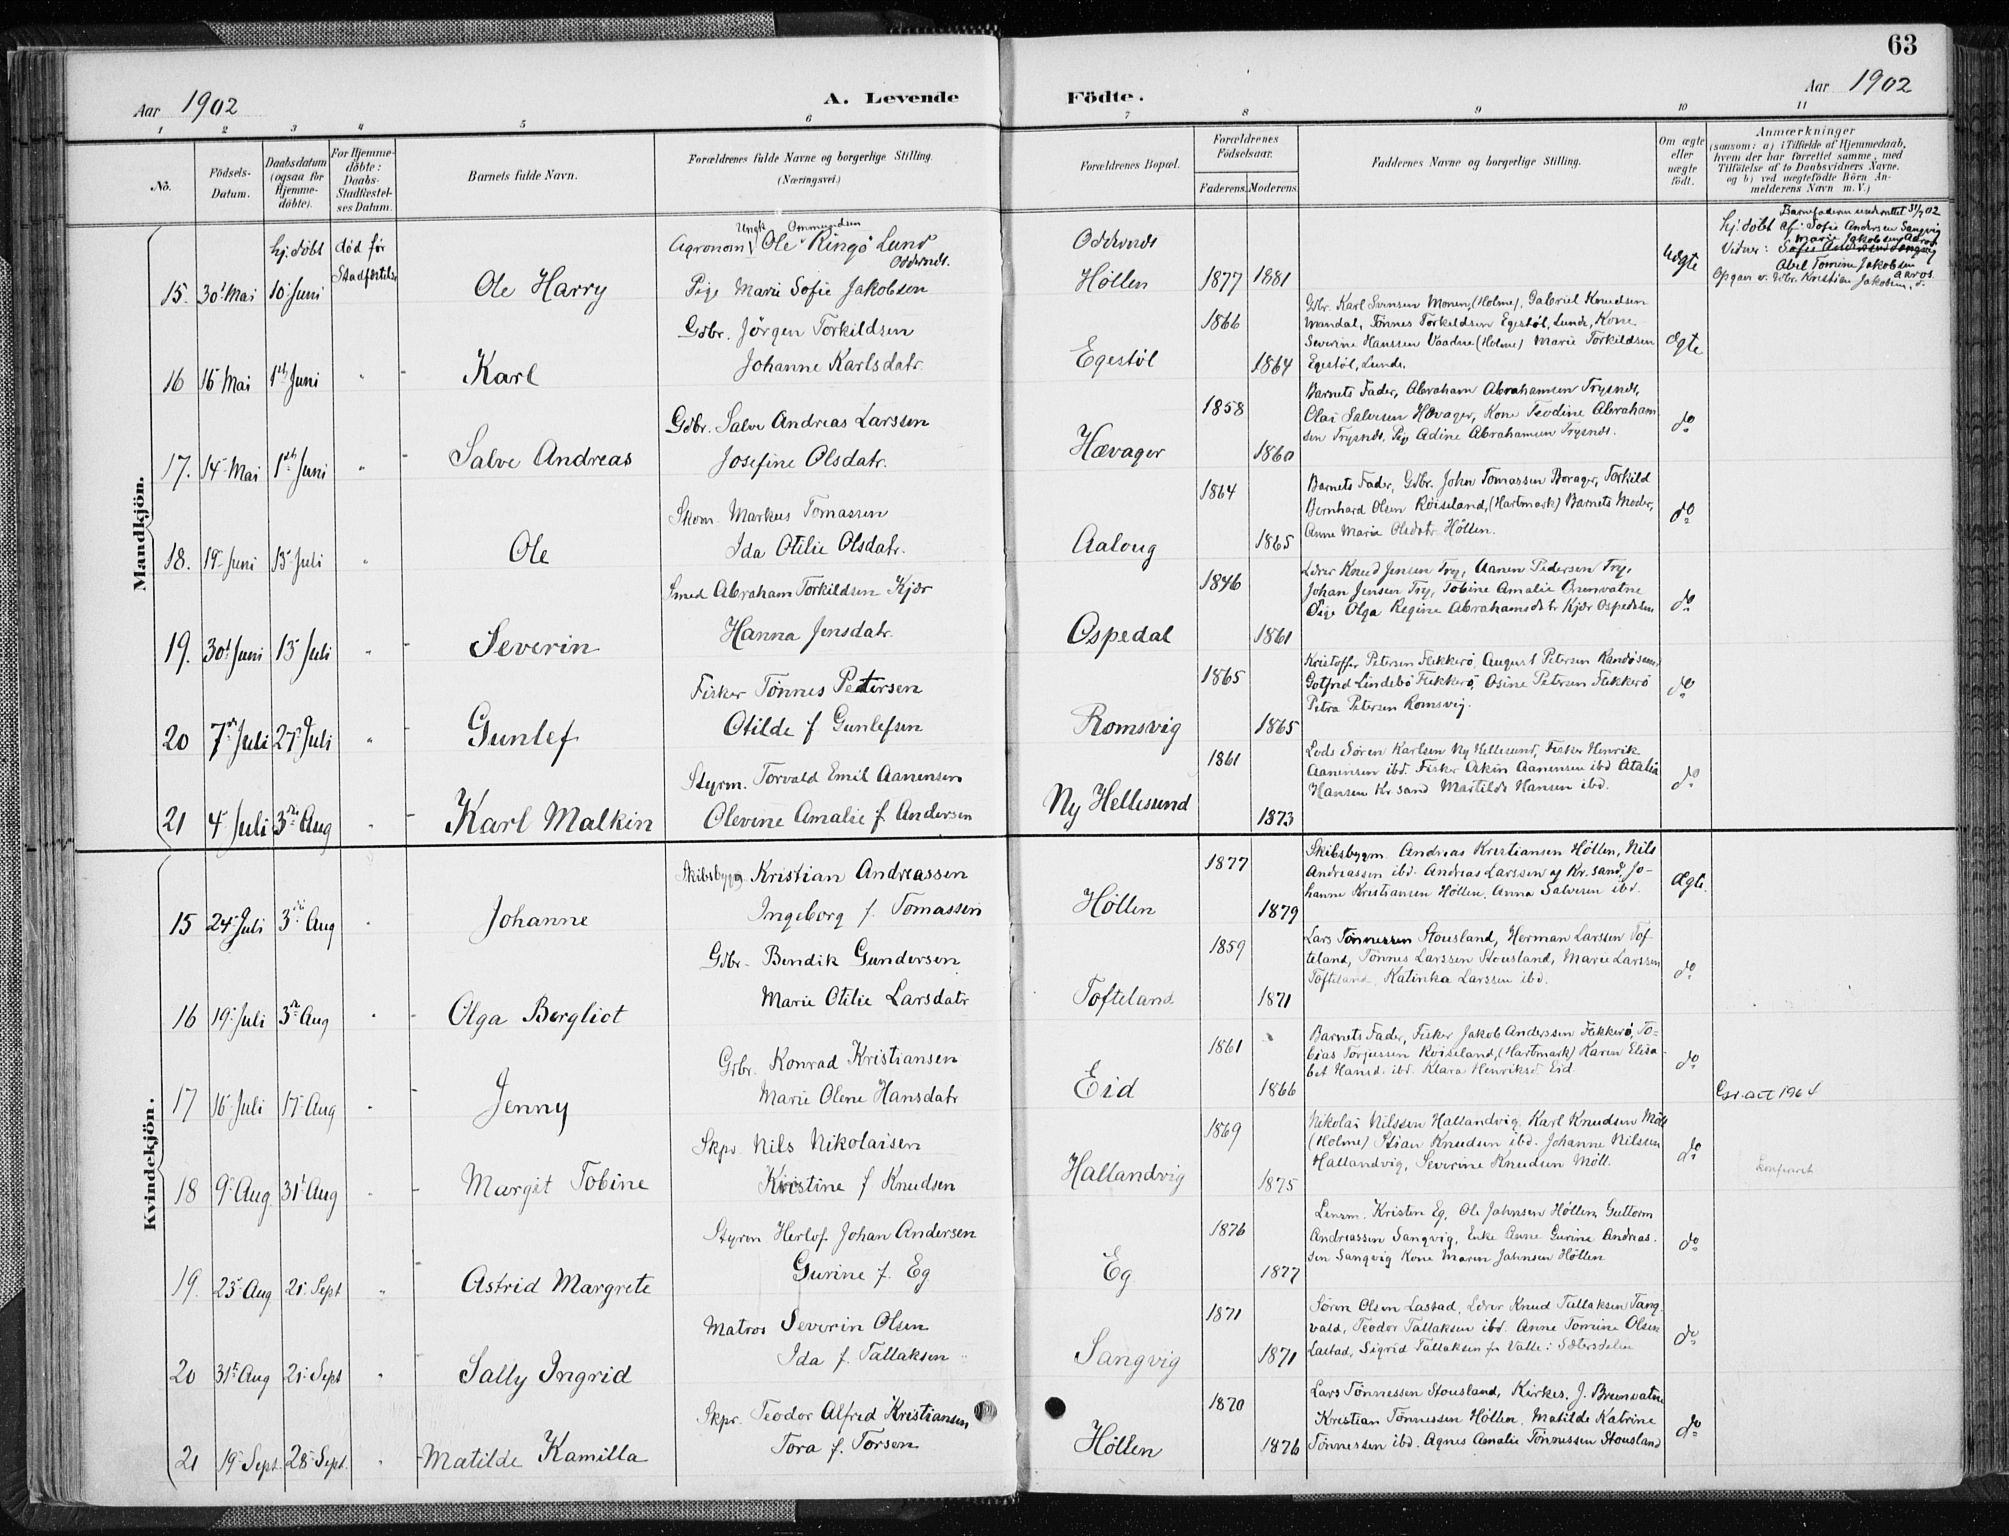 63
Aar 1902
A. Levende
Födte.
Aar 1902
1 2 3 4 5 6 7 8 9 10 11
No.
Födsels-Datum.
Daabsdatum (ogsaa for Hjemme-döbte).
For Hjemme-döbte: Daabs-Stadfæstel-ses Datum.
Barnets fulde Navn.
Forældrenes fulde Navne og borgerlige Stilling.
(Næringsvei.)
Forældrenes Bopæl.
Forældrenes Födselsaar.
Faderens. Moderens.
Faddernes Navne og borgerlige Stilling.
Om ægte eller uægte födt.
Anmærkninger
(saasom: a) i Tilfælde af Hjemmedaab,
hvem der har forrettet samme, med
Tilföielse af to Daabsvidners Navne.
og b) ved uægtefödte Börn An-
melderens Navn m. V.)
Mandkjön.
hj. döbt død før
Ungk Ommundsen
Agronom Ole Ringö Lund
Oddernes.
Oddernes
uægte
Barnefaderen underrettet 31/7 02
hj. döbt af: Sofie Andersen Sangvig
Vidner: Marie Jakobsen Aaros
Abel Tomine Jakobsen Aaros
15. 30' Mai 10' Juni Stadfæstelse Ole Harry Pige Marie Sofie Jakobsen Höllen 1877 1881
Opgav v. Gbr. Kristian Jakobsen
Gbr. Jörgen Torkildsen 1866
Gbr. Karl Svensen Monen, (Holme), Gabriel Knudsen
Mandal, Tönnes Torkildsen Egestöl, Lunde, Kone
Severine Hanssen Vaadne (Holme) Marie Torkildsen
Egestöl, Lunde.
16 15 Mai 1ste Juni " Karl Johanne Karlsdatr. Egestöl 1864 ægte
Gdbr. Salve Andreas Larssen 1858
Barnets Fader, Abraham Abrahamsen Trysnes,
Olai Salvesen Hævager, Kone Teodine Abraham
sen Trysnes, Pige Adine Abrahamsen Trysnes.
17. 14' Mai 1ste Juni " Salve Andreas Josefine Olsdatr. Hævager 1860 do
Skom. Markus Tomassen 1864
Barnets Fader, Gdbr. John Tomassen Borager, Torkild
Bernhard Olsen Röiseland, (Hartmark) Barnets Moder,
Anne Marie Olsdatr Höllen.
18. 19' Juni 13' Juli " Ole Ida Otilie Olsdatr. Aalong 1865 do
Smed Abraham Torkildsen Kjær 1846
Lærer Knud Jensen Try, Aanen Pedersen Try,
Johan Jensen Try, Tobine Amalie
Pige Olga Regine Abrahamsdtr Kjær Ospedalen
19. 30' Juni 13' Juli " Severin Hanna Jensdatr. Ospedal 1861 do
Fisker Tönnes Petersen 1865
Kristoffer Petersen Flekkerö, August Petersen Randösund,
Gotfred Lindebö Flekkerö, Osine Petersen Flekkerö
Petra Petersen Romsvig.
20 7de Juli 27' Juli " Gunlef Otilde f Gunlefsen Romsvig 1865 do
Styrm. Torvald Emil Aanensen 1861
Lods Sören Karlsen Ny Hellesund, Fisker Henrik
Aanensen ibd. Fisker Askin Aanensen ibd Atalia
Hansen Kr sand Martilde Hansen ibd.
21 4' Juli 3die Aug " Karl Malkin Olevine Amalie f Andersen Ny Hellesund 1873 do
Kvindekjön.
Skibsbygg. Kristian Andreassen 1877
Skibsbygm. Andreas Kristiansen Höllen, Nils
Andreassen ibd. Andreas Larssen af Kr. sand, Jo-
hanne Kristiansen Höllen, Anna Salvesen ibd.
15 24' Juli 3die Aug " Johanne Ingeborg f. Tomassen Höllen 1879 Ægte.
Gdbr. Bendik Gundersen 1859
Lars Tönnessen Stousland, Herman Larssen Tof-
teland, Tönnes Larssen Stousland, Marie Larssen
Tofteland, Katinka Larssen ibd.
16 19' Juli 3die Aug " Olga Bergliot Marie Otilie Larsdatr Tofteland 1871 do
Gdbr. Konrad Kristiansen 1861
Barnets Fader, Fisker Jakob Anderssen Flekkerö, To-
bias Torjussen Röiseland, (Hartmark) Karen Elisa-
bet Hansd. ibd. Klara Henriksd. Eid.
17 16' Juli 17' Aug " Jenny Marie Olene Hansdatr Eid 1866 do
1964
Skpr. Nils Nikolaisen 1869
Nikolai Nilssen Hallandvig, Karl Knudsen Möll
(Holme) Stian Knudsen ibd. Johanne Nilssen
Hallandvig, Severine Knudsen Möll.
18 9' Aug 31' Aug " Margit Tobine Kristine f Knudsen Hallandvig 1875 do
Styrm Herlof Johan Andersen 1876
Lensm. Kristen Eg, Ole Jahnsen Höllen, Guttorm
Andreassen Sangvig, Enke Anne Gurine Andreas-
sen Sangvig Kone Maren Jahnsen Höllen
19. 23' Aug 21' Sept " Astrid Margrete Gurine f. Eg Eg 1877 do
Matros Severin Olsen 1871
Sören Olsen Lastad, Lærer Knud Tallaksen Tang
vald, Teodor Tallaksen ibd. Anne Tomine Olsen
Lastad, Sigrid Tallaksen fra Valle i Sætersdalen
20 31te Aug 21' Sept " Sally Ingrid Ida f. Tallaksen Sangvig 1871 do
Skpr. Teodor Alfred Kristiansen 1870
Lars Tönnessen Stousland, Kirkes. J. Brunvatne
Kristian Tönnessen Höllen, Matilde Katrine
Tönnessen ibd. Agnes Amalie Tönnessen Stousland
21 19' Sept. 28' Sept. " Matilde Kamilla Tora f. Torsen Höllen 1876 do